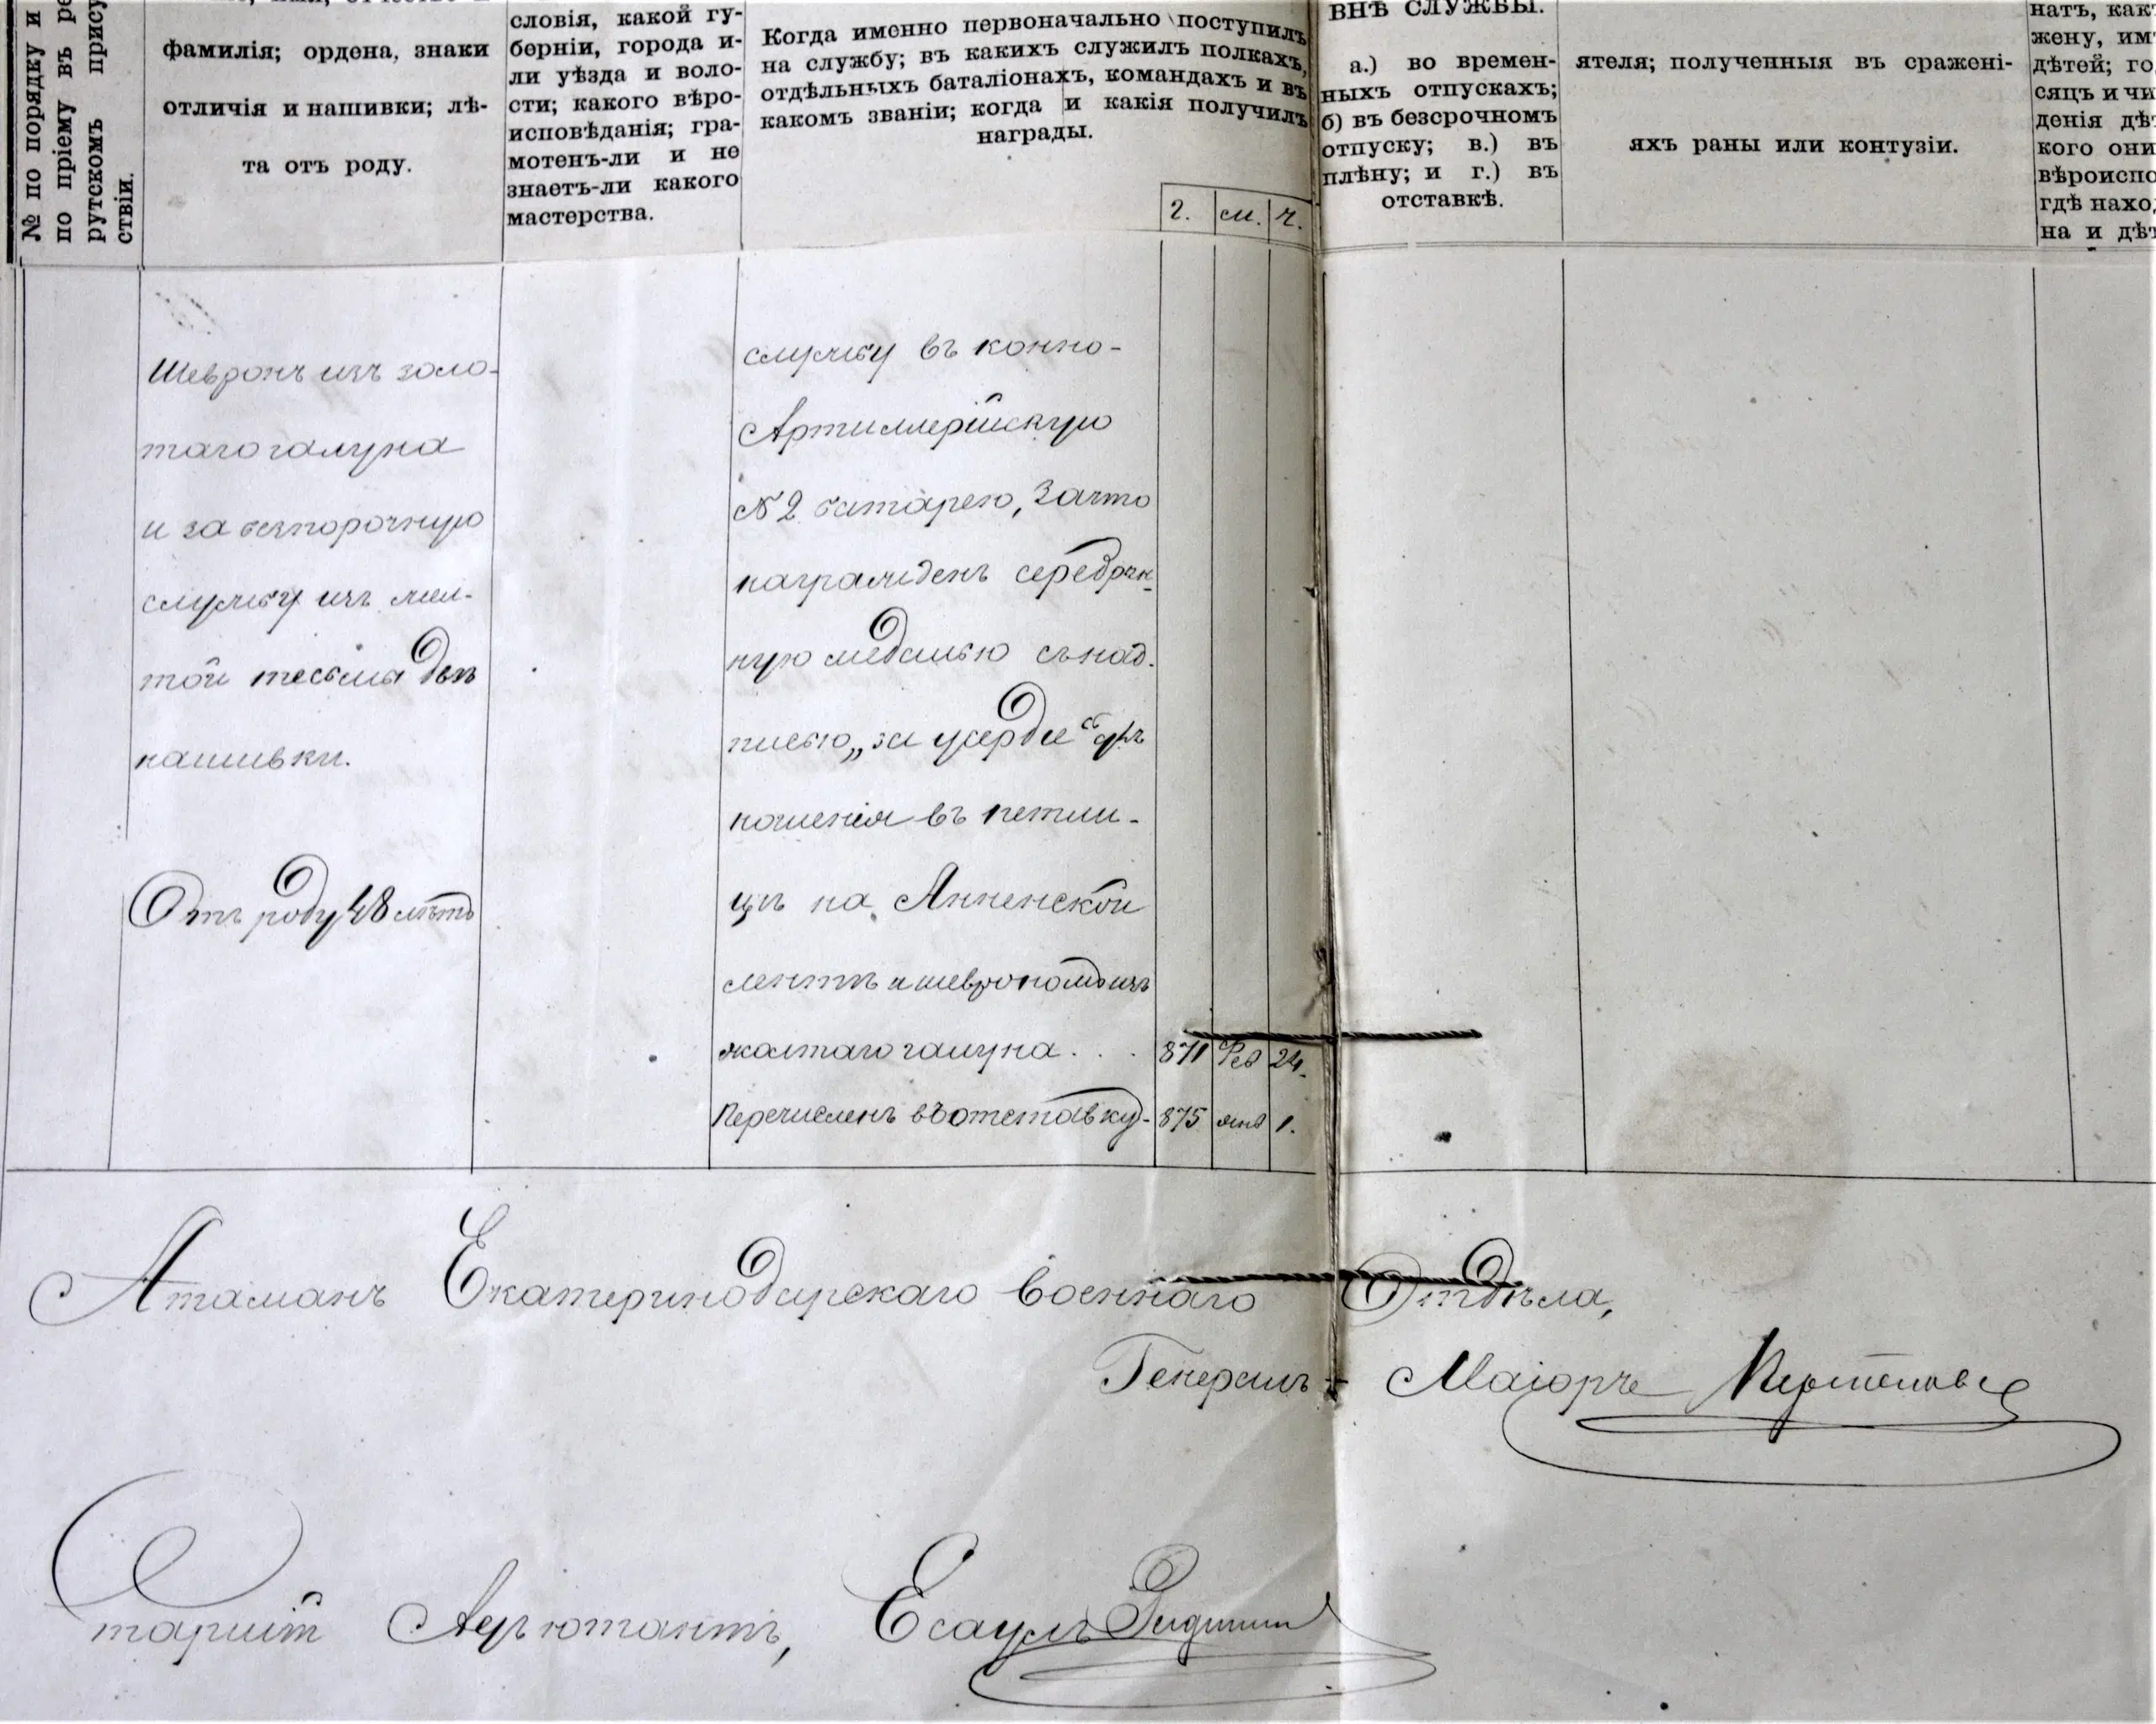 № по порядку и
по пріему въ ре
рутскомъ прису
ствіи.
фамилія; ордена, знаки
отличія и нашивки; лѣ-
та отъ роду.
словія, какой гу-
берніи, города и-
ли уѣзда и воло-
сти; какого вѣро-
исповѣданія; гра-
мотенъ-ли и не
знаетъ-ли какого
мастерства.
Когда именно первоначально поступилъ
на службу; въ какихъ служилъ полкахъ,
отдѣльныхъ баталіонахъ, командахъ и въ
какомъ званіи; когда и какія получилъ
награды.
г. м. ч.
ВНѢ СЛУЖБЫ.
а.) во времен-
ныхъ отпускахъ;
б) въ безсрочномъ
отпуску; в.) въ
плѣну; и г.) въ
отставкѣ.
ятеля; полученныя въ сражені-
яхъ раны или контузіи.
натъ, какъ
жену, им
дѣтей; го
сяцъ и чи
денія дѣт
кого они
вѣроиспо
гдѣ нахо
на и дѣт
Шевронъ изъ золо-
таго галуна
и за безпорочную
службу изъ жел-
той тесьмы двѣ
нашивки.
Отъ роду 48 лѣтъ
службу въ конно-
Артиллерійскую
№ 2 батарею, за что
награжденъ серебрян-
ную медалью съ над-
писью „за усердіе" для
ношенія въ петли-
цѣ на Анненской
лентѣ и шеврономъ изъ
жолтаго галуна . . . 871 Фев 24.
Перечисленъ въ отставку - 875 янв 1.
Атаманъ Екатеринодарскаго Военнаго Отдѣла,
Генералъ - Маіоръ
Старшій Адъютантъ, Есаулъ